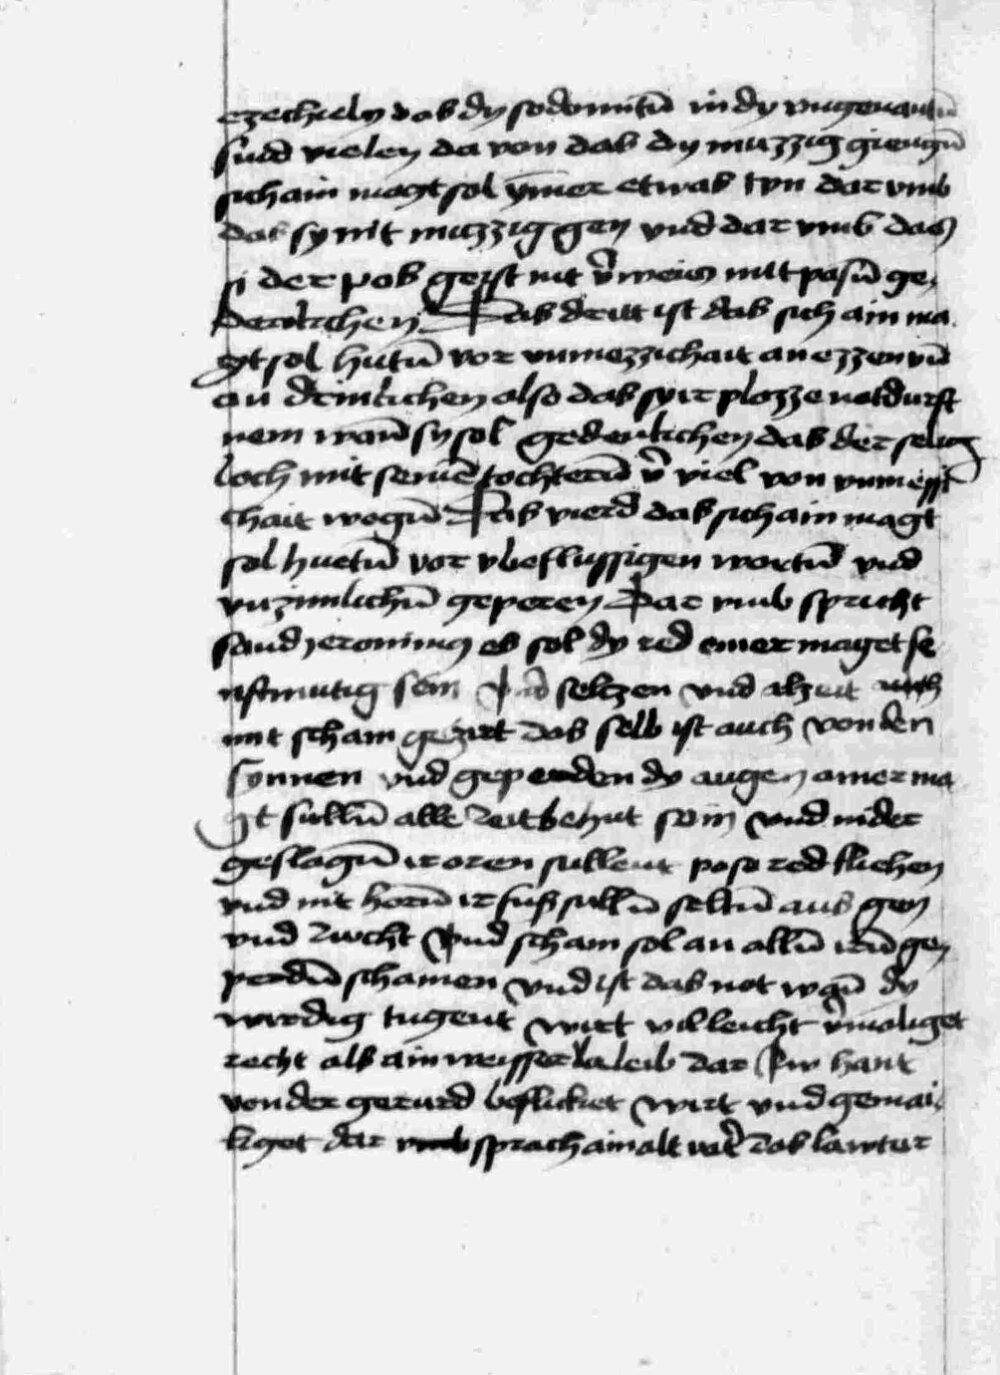 ezechielꝫ das dy sodomitū in dy vngenantū
sund vielen da von das dy muzzig giengū
sich ain magt sol ymer etwas tun dar vmb
das sy nit muzzig gen vnd dar vmb das
si der pos geyst nit v̄weis mit posū ge
denkchen Das dritt ist das sich ain ma
gt sol hutū vor vnmezzichait an ezzen vnd
an drinkchen also das sy ir plozze notdurft
nem wan̄ sy sol gedenkchen das der selig
loch mit seinē tochterū v̄viel von vnmessi
chait wegū Das vierd das sich ain magt
sol huetū vor vbeflussigen wortū vnd
vnzimlichū geperen Dar vmb spricht
sand jeronimus es sol dy red einer maget se
nftmutig sein vnd seltzen vnd alzeit auch
mit scham geziert das selb ist auch von den
synnen vnd geperden dy augen ainer ma
gt sullū alle zeit behut sein vnd nider
geslagū ir oren sullent pose red fliehen
vnd nit horū ir fus sullū seltū aus gen
vnd zucht vnd scham sol an allū irū ge
perdū schainen vnd ist das not wan̄ dy
wirdig tugent wirt villeicht v̄mailiget
recht als ain weisser laleib dar in hant
von der gerurd beflekket wirt vnd gemai
liget dar vmb sprach ain alt vat̄ das lawter